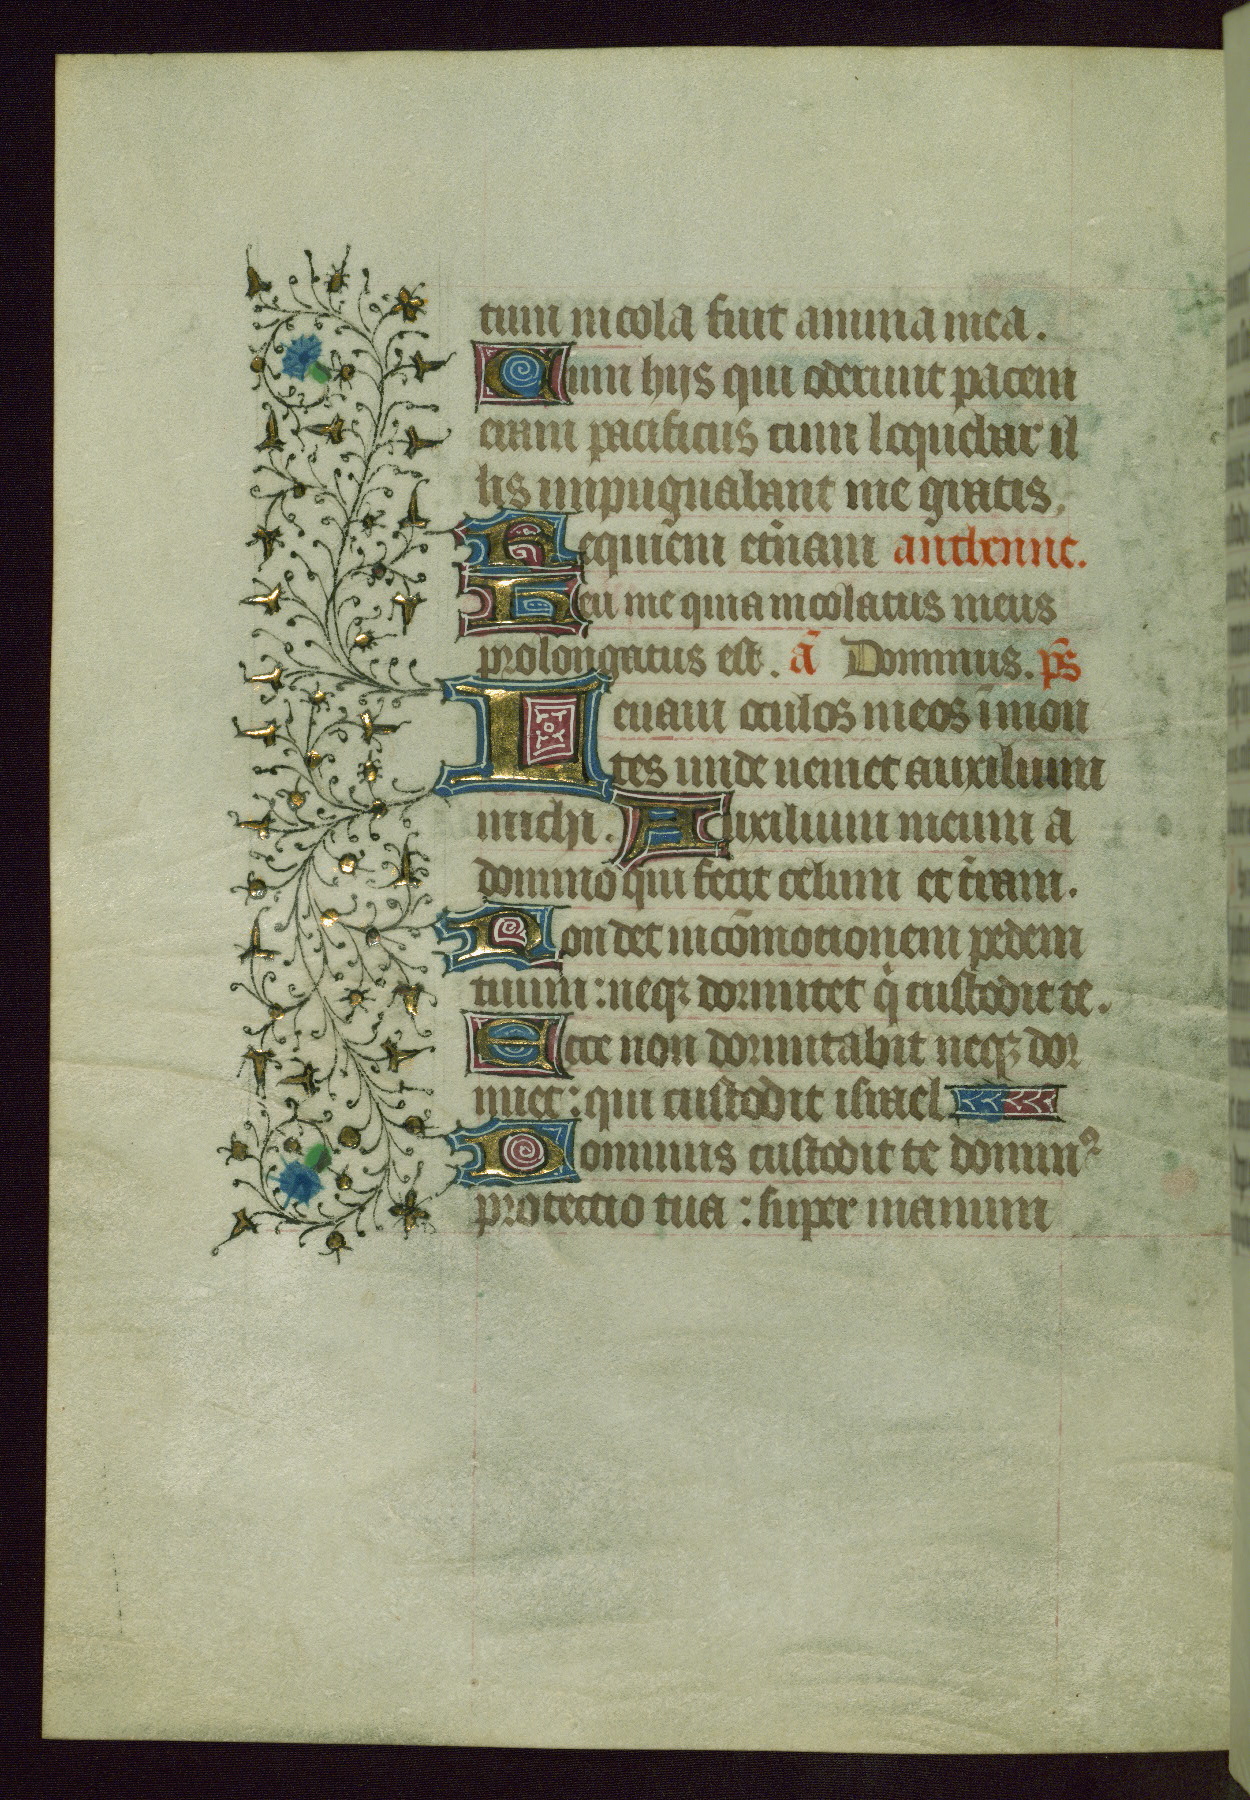 tum incola fuit anima mea.
Cum hijs qui oderunt pacem
eram pacificus cum loquebar il
lis impugnabant me gratis.
Requiem et̄nam anthenne.
Heu me quia incolatus meus
prolongatus est. ā Dominus. p̄s
Leuaui oculos meos ī mon
tes unde ueniet auxilium
michi. Auxilium meum a
domino qui fecit celum et t̄ram.
Non det in cōmotionem pedem
tuum: neqꝫ dormitet q̇ custodit te.
Ecce non dormitabit neqꝫ dor
miet: qui custodit israel
Dominus custodit te dominꝰ
protectio tua: super manum